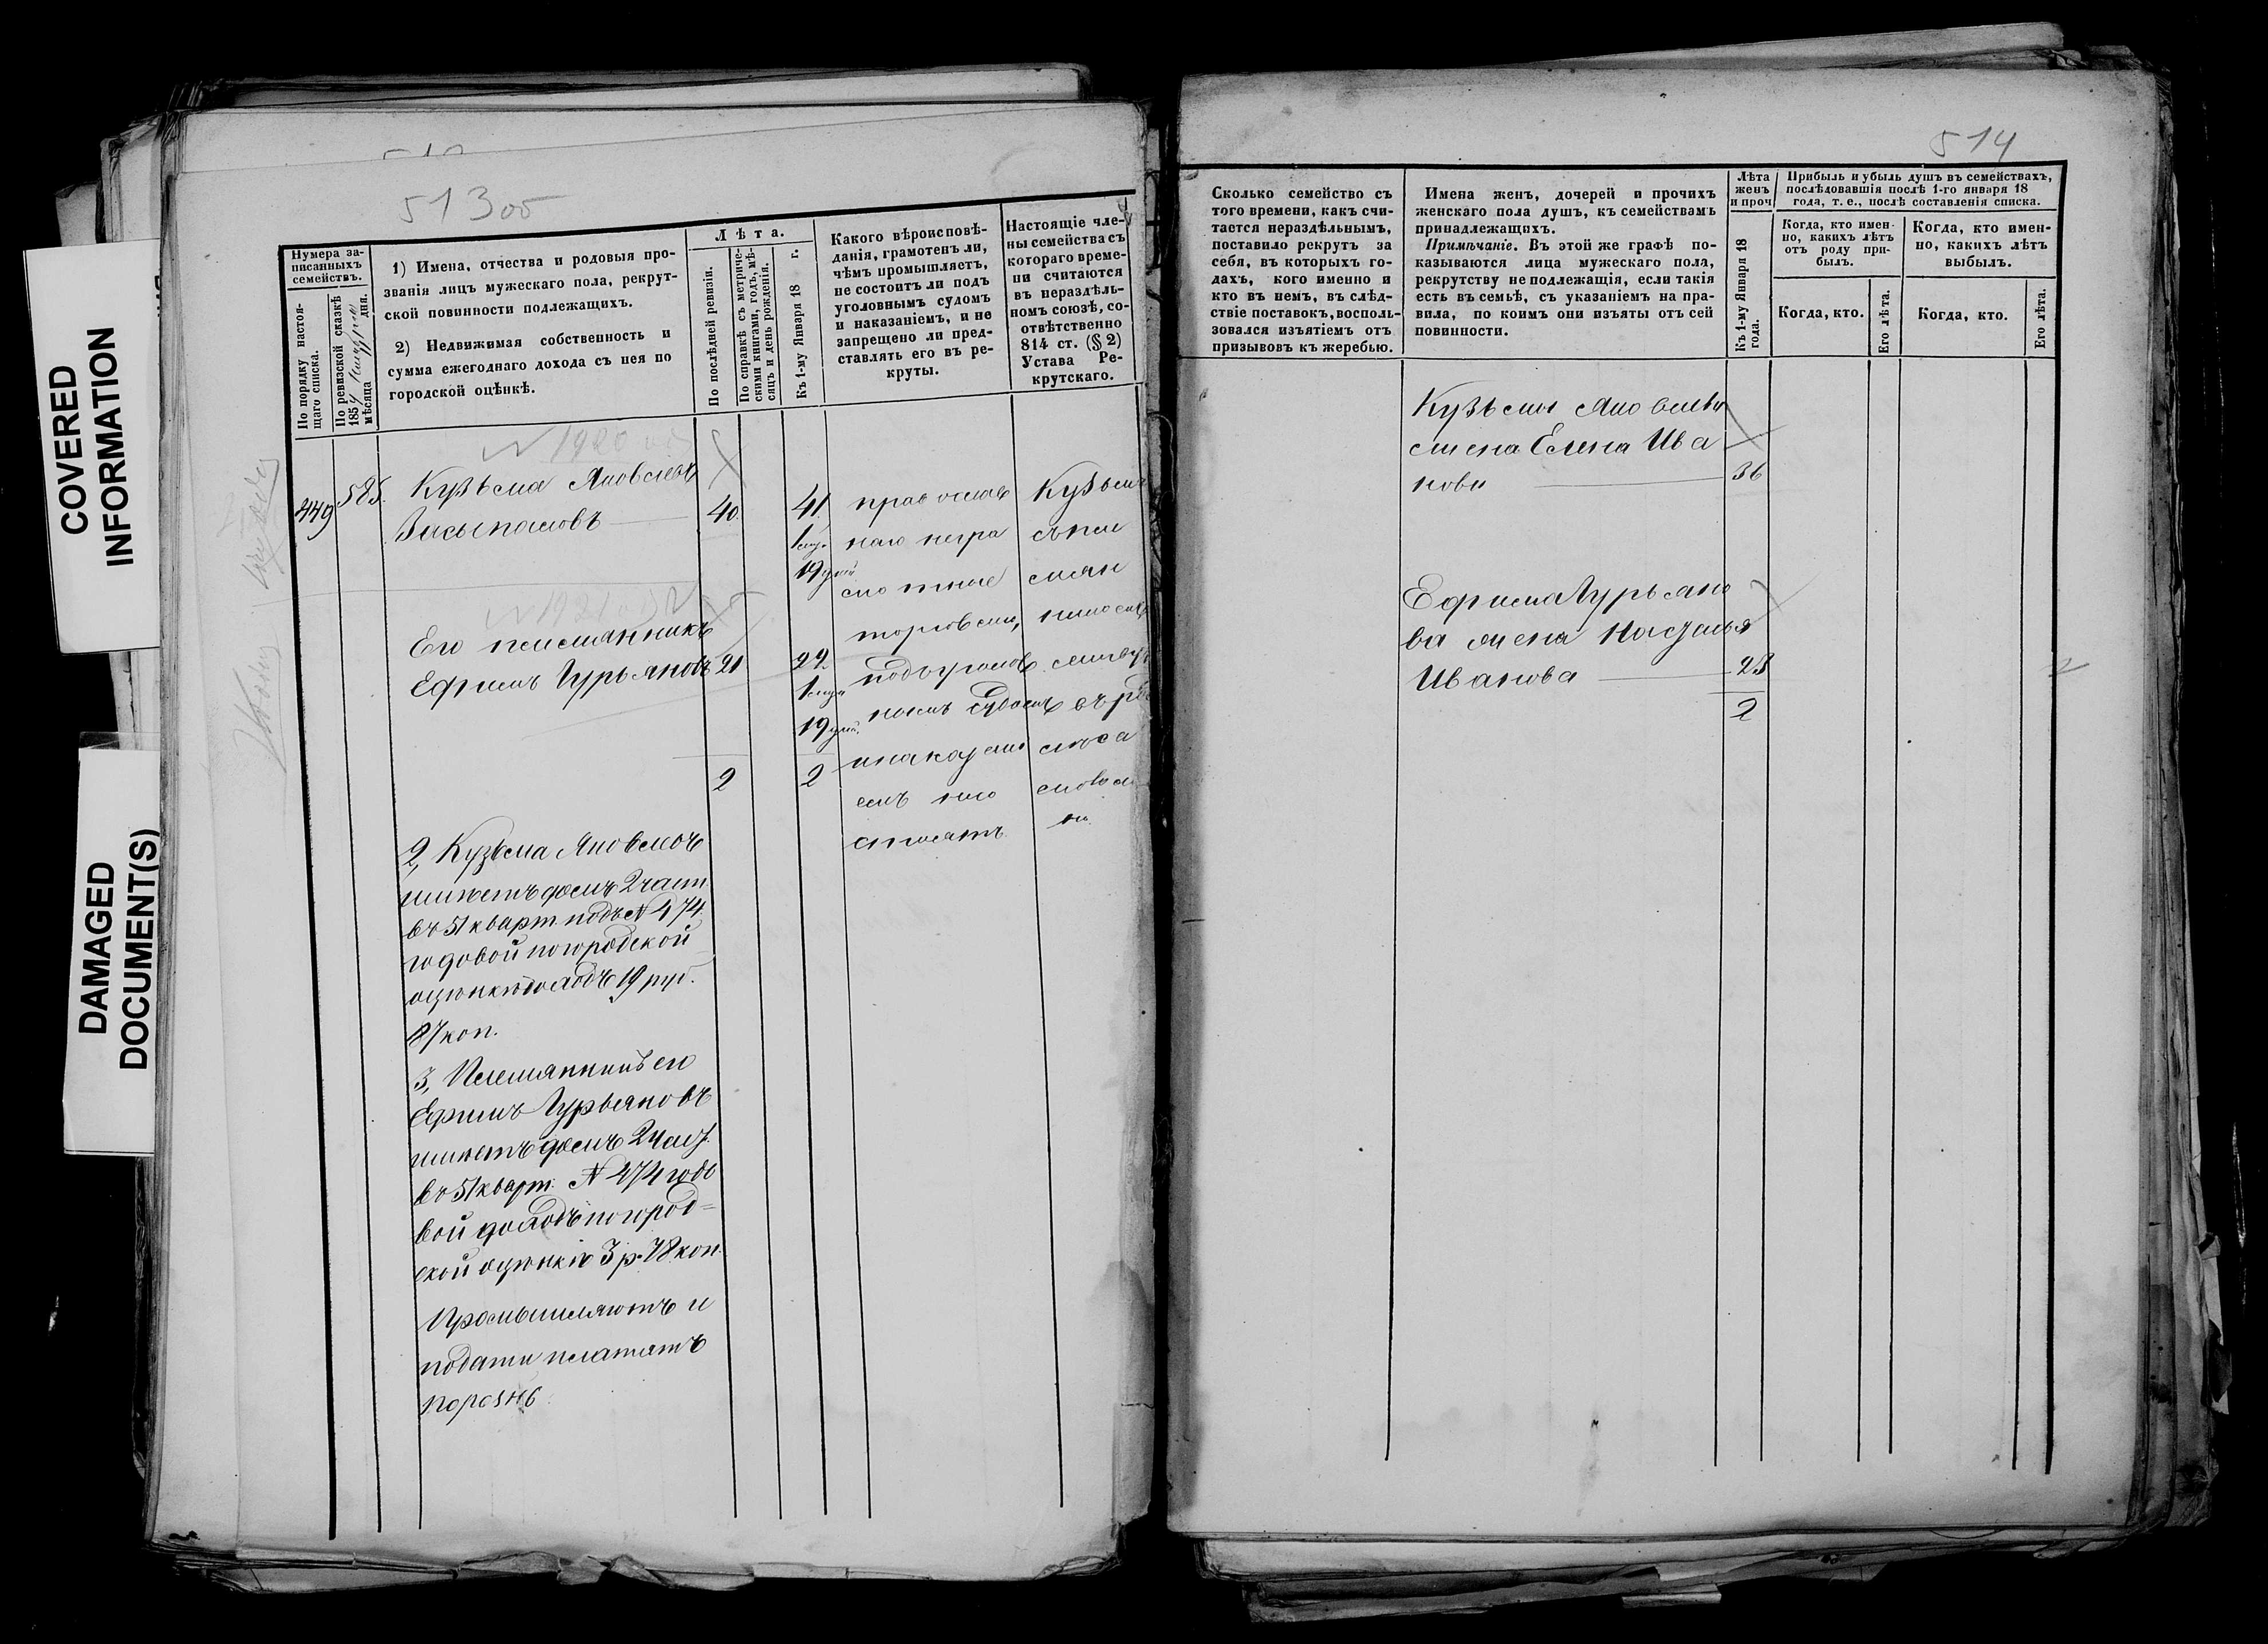 COVERED
INFORMATION
DAMAGED
DOCUMENT(S)
513об
Нумера за-
писанныхъ
семействъ.
По порядку настоя-
щаго списка.
По ревизской сказкѣ
185
мѣсяца дня.
1) Имена, отчества и родовыя про-
званія лицъ мужескаго пола, рекрут-
ской повинности подлежащихъ.
2) Недвижимая собственность и
сумма ежегоднаго дохода съ нея по
городской оцѣнкѣ.
Лѣта.
По послѣдней ревизіи.
По справкѣ съ метриче-
скими книгами, годъ, мѣ-
сяцъ и день рожденія.
Къ 1-му Января 18 г.
Какого вѣроисповѣ-
данія, грамотенъ ли,
чѣмъ промышляетъ,
не состоитъ ли подъ
уголовнымъ судомъ
и наказаніемъ, и не
запрещено ли пред-
ставлять его въ ре-
круты.
Настоящіе чле-
ны семейства съ
котораго време-
ни считаются
въ нераздѣль-
номъ союзѣ, со-
отвѣтственно
814 ст. (§ 2)
Устава Ре-
крутскаго.
№ 1920
449
585.
Кузьма Яковлевъ
Засыпаловъ
40
41
1 мѣ.
19 дней
№ 1921
Его племянникъ
Ефимъ Гурьяновъ 21
22
1 мѣся
19 дней
2
2
православ
наго негра
мотные
торговлей,
подъ уголов
нымъ судомъ
и наказані
емъ не
состоятъ
Кузьма
съ пле
мян
никомъ
2, Кузьма Яковлевъ
имѣетъ домъ 2 част
въ 51 кварт. подъ № 474.
годовой по городской
оцѣнкѣ доходъ 19 руб.
87 коп.
3, Племянникъ его
Ефимъ Гурьяновъ
имѣетъ домъ 2 част.
въ 51 кварт. № 474 годо
вой доходъ по город=
ской оцѣнкѣ 3 р. 78 коп.
Промышляютъ и
подати платятъ
порознь
514
Сколько семейство съ
того времени, какъ счи-
тается нераздѣльнымъ,
поставило рекрутъ за
себя, въ которыхъ го-
дахъ, кого именно и
кто въ немъ, въ слѣд-
ствіе поставокъ, восполь-
зовался изъятіемъ отъ
призывовъ къ жеребью.
Имена женъ, дочерей и прочихъ
женскаго пола душъ, къ семействамъ
принадлежащихъ.
Примѣчаніе. Въ этой же графѣ по-
казываются лица мужескаго пола,
рекрутству не подлежащія, если такія
есть въ семьѣ, съ указаніемъ на пра-
вила, по коимъ они изъяты отъ сей
повинности.
Лѣта
женъ
и проч
Къ 1-му Января 18
года.
Прибыль и убыль душъ въ семействахъ,
послѣдовавшія послѣ 1-го января 18
года, т. е., послѣ составленія списка.
Когда, кто имен-
но, какихъ лѣтъ
отъ роду при-
былъ.
Когда, кто имен-
но, какихъ лѣтъ
выбылъ.
Когда, кто.
Его лѣта.
Когда, кто.
Его лѣта.
Кузьмы Яковлева
жена Елена Ива
нова 36
Ефима Гурьяно
ва жена Наталья
Иванова 23
2